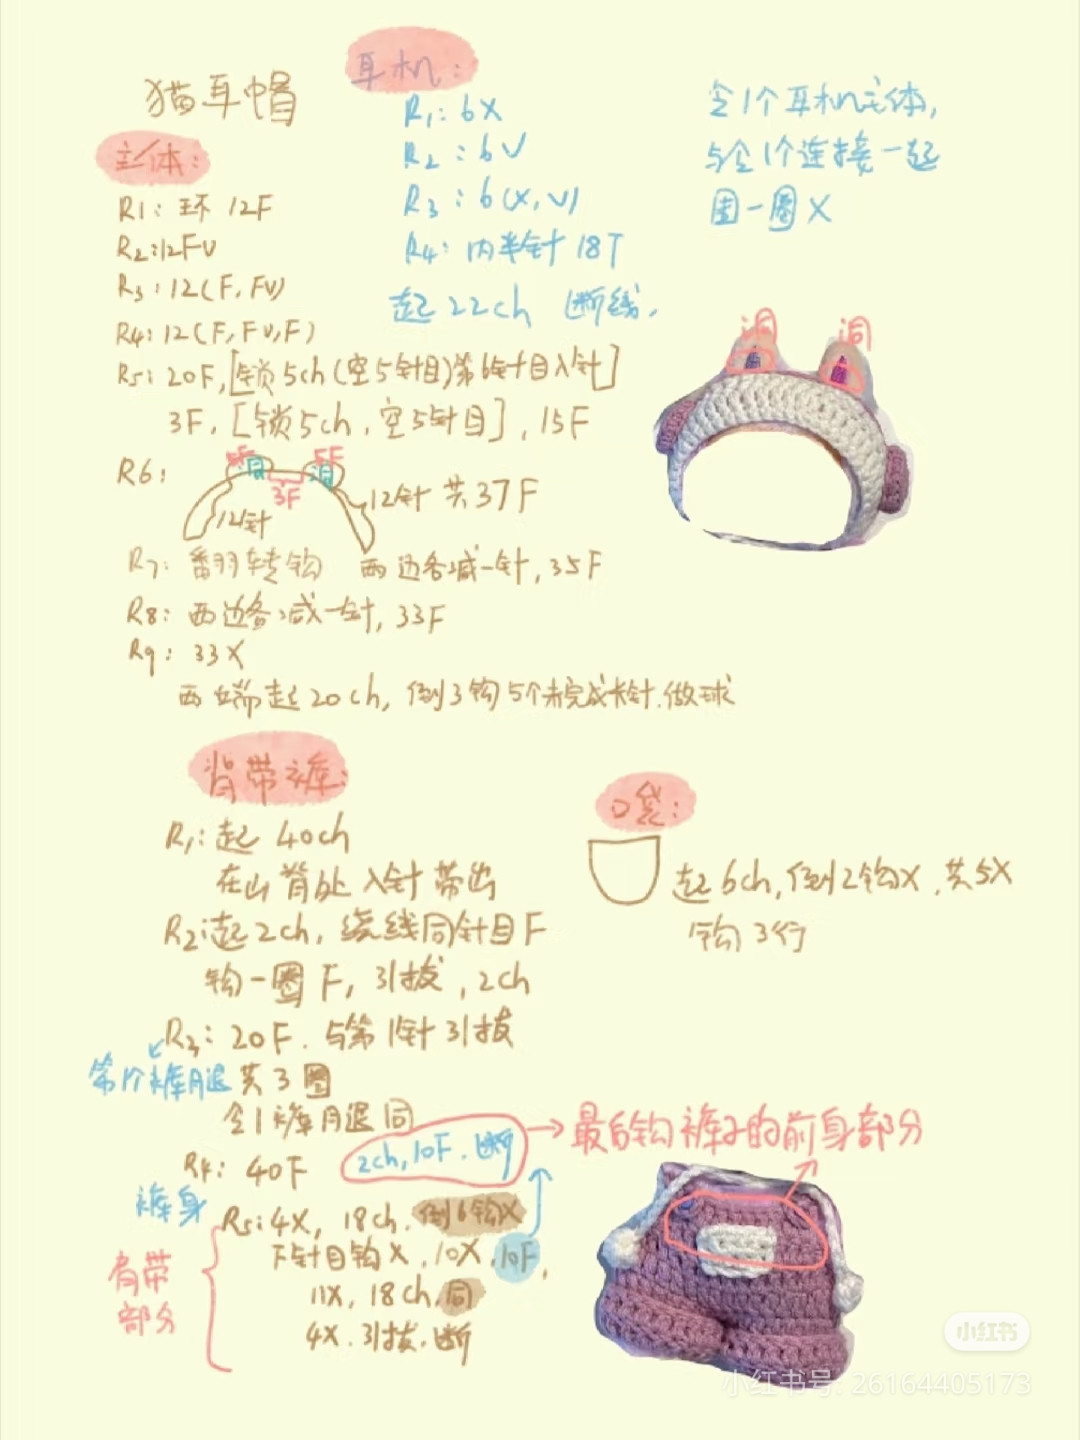 猫耳帽
主体：
R1：环 12F
R2：12FV
R3：12(F, FV)
R4：12(F, FV, F)
R5：20F,[锁5ch(空5针目)第6针目入针]
3F, [锁5ch, 空5针目], 15F
R6：
5F
洞
5F
洞
3F
12针
12针 共37F
R7：翻转钩 两边各减一针, 35F
R8：两边各减一针, 33F
R9：33X
两端起20ch, 倒3钩5个未完成长针.做球
耳机：
R1：6X
R2：6V
R3：6(X, V)
R4：内半针 18T
起22ch 断线.
仝1个耳机主体,
与仝1个连接一起
围一圈X
洞
洞
背带裤：
R1：起40ch
在山背处入针带出
R2：起2ch, 绕线同针目F
钩一圈F, 引拔, 2ch
R3：20F. 与第1针引拔
第1个裤腿
共3圈
仝1裤腿同
R4：40F
裤身
2ch, 10F. 断
→最后钩裤子的前身部分
R5：4X, 18ch. 倒6钩X
下针目钩X, 10X, 10F,
11X, 18ch, 同
4X. 引拔. 断
肩带
部分
口袋：
起6ch, 倒2钩X, 共5X
钩3行
小红书
小红书号: 26164405173